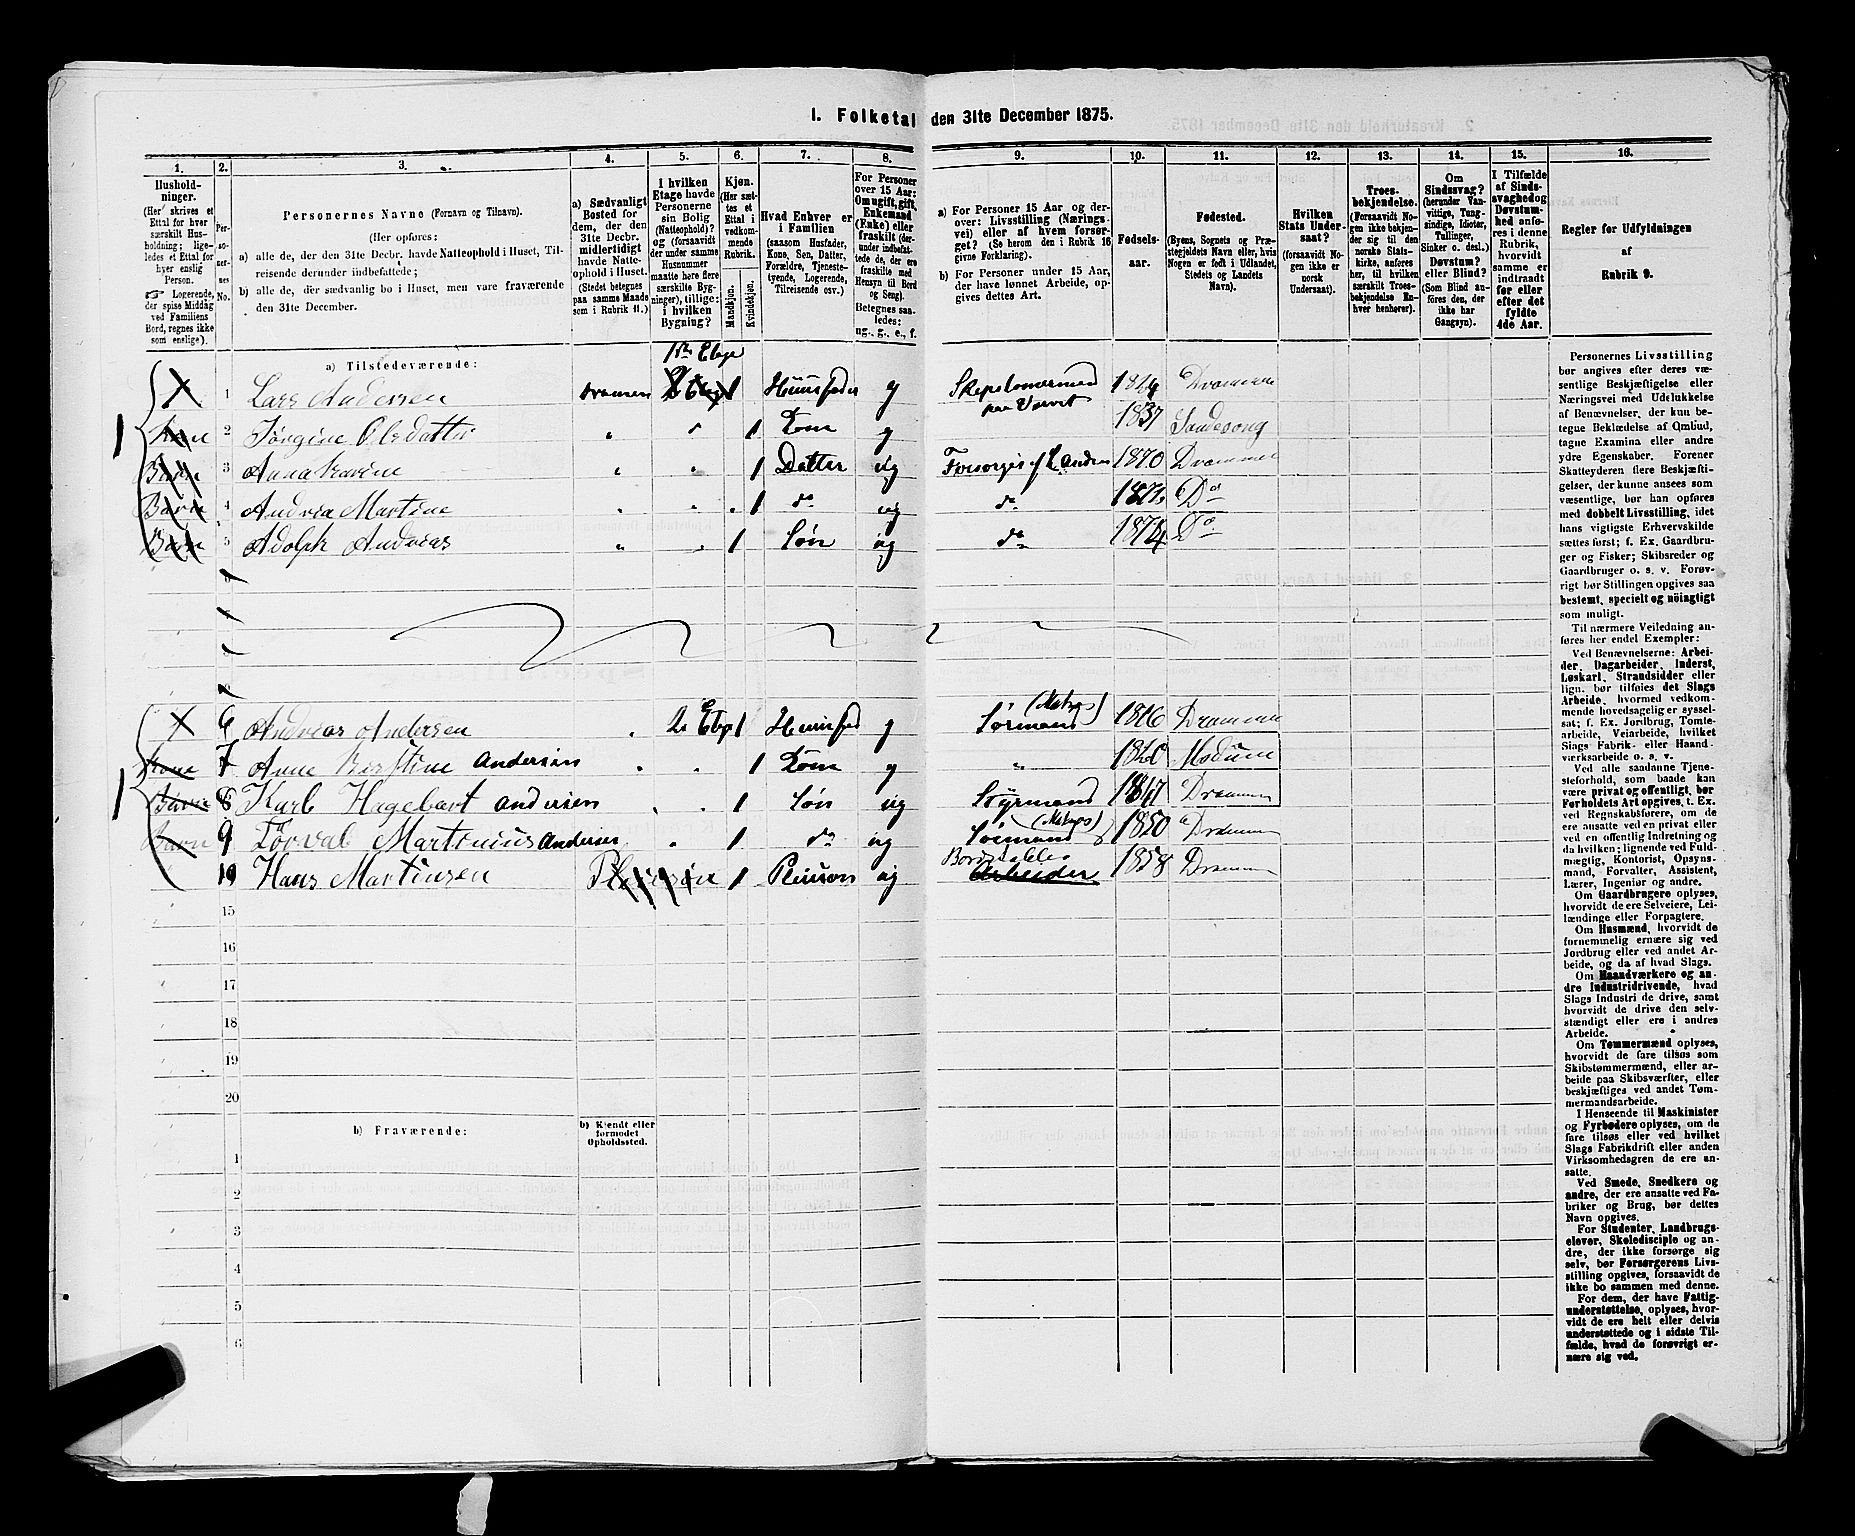 1. Folketal den 31te December 1875.
1. 2. 3. 4. 5. 6. 7. 8. 9. 10. 11. 12. 13. 14. 15. 16.
Hushold-
ninger.
(Her skrives et
Ettal for hver
særskilt Hus-
holdning; lige-
ledes et Ettal for
hver enslig
Person.
☞ Logerende,
der spise Middag
ved Familiens
Bord, regnes ikke
som enslige).
Per-
so-
ner-
nes
No.
Personernes Navne (Fornavn og Tilnavn).
(Her opføres:
a) alle de, der den 31te Decbr. havde Natteophold i Huset, Til-
reisende derunder indbefattede;
b) alle de, der sædvanlig bo i Huset, men vare fraværende
den 31te December.
a) Sædvanligt
Bosted for
dem, der den
31te Decbr.
midlertidigt
havde Natte-
ophold i Huset.
(Stedet betegnes
paa samme Maade
som i Rubrik 11.)
I hvilken
Etage havde
Personerne
sin Bolig
(Natteophold)?
og (forsaavidt
der under samme
Husnummer
maatte være flere
særskilte Byg-
ninger), tillige:
i hvilken
Bygning?
Kjøn.
(Her sæt-
tes et
Ettal i
vedkom-
mende
Rubrik.
Mandkjøn.
Kvindekjøn.
Hvad Enhver er
i Familien
(saasom Husfader,
Kone, Søn, Datter,
Forældre, Tjeneste-
tyende, Logerende,
Tilreisende osv.)
For Personer
over 15 Aar:
Om ugift, gift,
Enkemand
(Enke) eller
fraskilt (der-
under indbefat-
tede de, der ere
fraskilte med
Hensyn til Bord
og Seng).
Betegnes saa-
ledes:
ug., g., e., f.
a) For Personer 15 Aar og der-
over: Livsstilling (Nærings-
vei) eller af hvem forsør-
get? (Se herom den i Rubrik 16
givne Forklaring).
b) For Personer under 15 Aar,
der have lønnet Arbeide, op-
gives dettes Art.
Fødsels-
aar.
Fødested.
(Byens, Sognets og Præ-
stegjeldets Navn eller, hvis
Nogen er født i Udlandet,
Stedets og Landets
Navn).
Hvilken
Stats Under-
saat?
(forsaavidt No-
gen ikke er
norsk
Undersaat).
Troes-
bekjendelse.
(Forsaavidt No-
gen ikke bekjen-
der sig til den
norske Stats-
kirke, anføres
her, til hvilken
særskilt Troes-
bekjendelse En-
hver henhører).
Om
Sindssvag?
(herunder Van-
vittige, Tung-
sindige, Idioter,
Tullinger,
Sinker o. desl.)
Døvstum?
eller Blind?
(Som Blind an-
føres den, der
ikke har
Gangsyn).
I Tilfælde
af Sinds-
svaghed og
Døvstum-
hed anfø-
res i denne
Rubrik,
hvorvidt
samme er
indtraadt
før eller
efter det
fyldte
4de Aar.
Regler for Udfyldningen
af
Rubrik 9.
a) Tilstedeværende:
1ste Etage
1 Lars Andersen Dramen 1 Huusfader g Skipstømermand paa Værvet 1824 Drammen
Kone 2 Jørgine Olsdatter " " 1 Kone g 1837 Sandesong
Barn 3 Anna Karine " " 1 Datter ug Forsørges af L Anders 1870 Drammen
Barn 4 Andrea Martine " " 1 do ug do D°
Barn 5 Adolph Andreas " " 1 Søn ug do 1874 D°
6 Andreas Andersen " 2 Etage 1 Huusfad g Sømand (Matros) 1816 Drammen
Kone 7 Anne Kirstine Andersen " " 1 Kone g " Modum
Barn 8 Karl Hagebart Andersen " " 1 Søn ug Styrmand 1847 Drammen
Barn 9 Torval Martinius Andersen " " 1 do ug Sømand (Matros) 1850 Drammen
10 Hans Martinsen 1 ug Arbeider 1858 Drammen
15
16
17
18
19
20
b) Fraværende:
b) Kjendt eller
formodet
Opholdssted.
1
2
3
4
5
6
Personernes Livsstilling
bør angives efter deres væ-
sentlige Beskjæftigelse eller
Næringsvei med Udelukkelse
af Benævnelser, der kun be-
tegne Beklædelse af Ombud,
tagne Examina eller andre
ydre Egenskaber. Forener
Skatteyderen flere Beskjæfti-
gelser, der kunne ansees som
væsentlige, bør han opføres
med dobbelt Livsstilling, idet
hans vigtigste Erhvervskilde
sættes først; f. Ex. Gaardbru-
ger og Fisker; Skibsreder og
Gaardbruger o. s. v. Forøv-
rigt bør Stillingen opgives saa
bestemt, specielt og nöiagtigt
som muligt.
Til nærmere Veiledning an-
føres her endel Exempler:
Ved Benævnelserne: Arbei-
der, Dagarbeider, Inderst,
Løskarl, Strandsidder eller
lign. bør tilføies det Slags
Arbeide, hvormed vedkom-
mende hovedsagelig er syssel-
sat; f. Ex. Jordbrug, Tomte-
arbeide, Veiarbeide, hvilket
Slags Fabrik- eller Haand-
værksarbeide o. s. v.
Ved alle saadanne Tjene-
steforhold, som baade kan
være privat og offentligt, bør
Forholdets Art opgives, t. Ex.
ved Regnskabsførere, om de
ere ansatte ved en privat eller
ved en offentlig Indretning og
da hvilken; lignende ved Fuld-
mægtig, Kontorist, Opsyns-
mand, Forvalter, Assistent,
Lærer, Ingeniør og andre.
Om Gaardbrugere oplyses,
hvorvidt de ere Selveiere, Lei-
lændinge eller Forpagtere.
Om Husmænd, hvorvidt de
fornemmelig ernære sig ved
Jordbrug eller ved andet Ar-
beide, og da af hvad Slags.
Om Haandværkere og an-
dre Industridrivende, hvad
Slags Industri de drive, samt
hvorvidt de drive den selv-
stændigt eller ere i andres
Arbeide.
Om Tømmermænd oplyses,
hvorvidt de fare tilsøs som
Skibstømmermænd, eller ar-
beide paa Skibsværfter, eller
beskjæftiges ved andet Tøm-
mermandsarbeide.
I Henseende til Maskinister
og Fyrbødere oplyses, om de
fare tilsøs eller ved hvilket
Slags Fabrikdrift eller anden
Virksomhedsgren de ere an-
satte.
Ved Smede, Snedkere og
andre, der ere ansatte ved Fa-
briker og Brug, bør dettes
Navn opgives.
For Studenter, Landbrugs-
elever, Skoledisciple og an-
dre, der ikke forsørge sig
selv, bør Forsørgerens Livs-
stilling opgives, forsaavidt de
ikke bo sammen med denne.
For dem, der have Fattig-
understøttelse, oplyses, hvor-
vidt de ere helt eller delvis
understøttede og i sidste Til-
fælde, hvad de forøvrigt er-
nære sig ved.